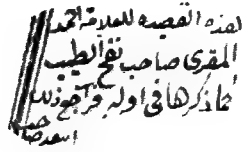 لهذه القصيده للعلامة احمد
المقري صاحب نفح الطيب
كما ذكرها في اوله فراجع ذلك